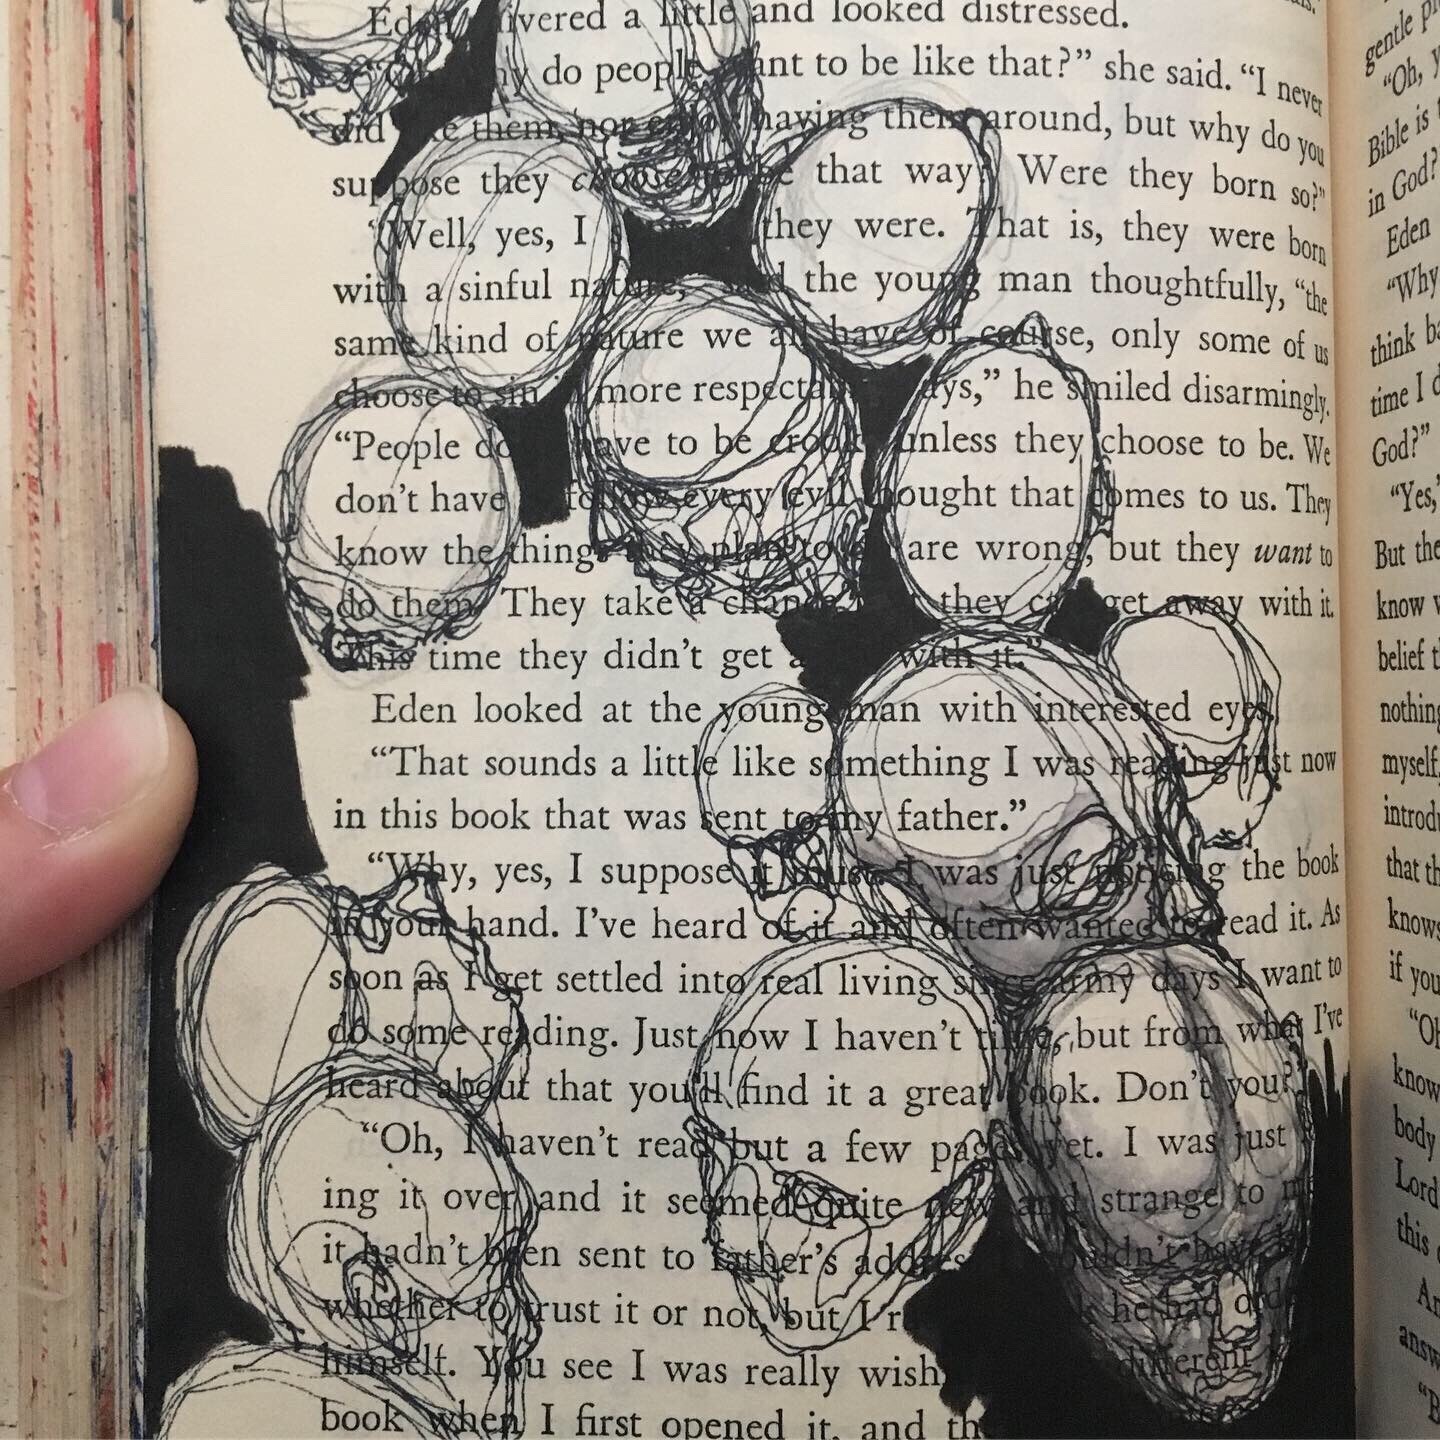 Eden shivered a little and looked distressed.
"Oh, why do people want to be like that?" she said. "I never
did like them, nor enjoy having them around, but why do you
suppose they choose to be that way? Were they born so?"
"Well, yes, I they were. That is, they were born
with a sinful nature," said the young man thoughtfully, "the
same kind of nature we all have of course, only some of us
choose to sin in more respectable ways," he smiled disarmingly.
"People do have to be crooks unless they choose to be. We
don't have to follow every evil thought that comes to us. They
know the things they plan to do are wrong, but they want to
do them. They take a chance they can get away with it.
This time they didn't get away with it."
Eden looked at the young man with interested eyes.
"That sounds a little like something I was reading just now
in this book that was sent to my father."
"Why, yes, I suppose it must. I was just noticing the book
in your hand. I've heard of it and often wanted to read it. As
soon as I get settled into real living since army days I want to
do some reading. Just now I haven't time, but from what I've
heard about that you'll find it a great book. Don't you?"
"Oh, I haven't read but a few pages yet. I was just
ing it over and it seemed quite new and strange to me
it hadn't been sent to father's address I wouldn't have
whether to trust it or not, but I he had
himself. You see I was really different
book when I first opened it, and
gentle
"Oh,
Bible is
in God?
Eden
"Why
think
time I
God?"
"Yes,"
But the
know
belief
nothing
myself,
that
knows
if you
"Oh
know
body
Lord
this